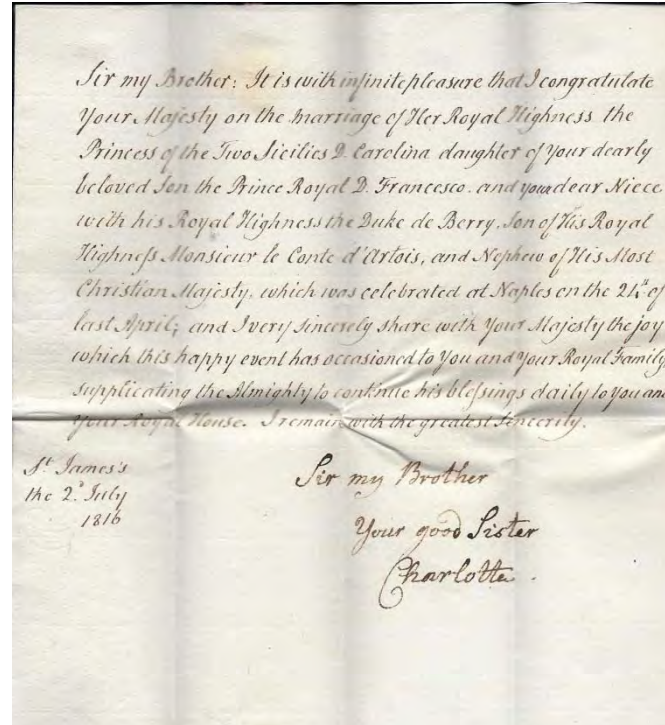 Sir my Brother: It is with infinite pleasure that I congratulate
Your Majesty on the marriage of Her Royal Highness the
Princess of the Two Sicilies D. Carolina daughter of Your dearly
beloved Son the Prince Royal D. Francesco. and your dear Niece
with his Royal Highness the Duke de Berry, Son of His Royal
Highneſs Monsieur le Conte d'Artois, and Nephew of His Most
Christian Majesty, which was celebrated at Naples on the 24th of
last April; and I very sincerely share with Your Majesty the joy
which this happy event has occasioned to You and Your Royal Family,
supplicating the Almighty to continue his bleſsings daily to you and
Your Royal House. I remain with the greatest sincerity.
St. James's
the 2d July
1816
Sir my Brother
Your good Sister
Charlotte.